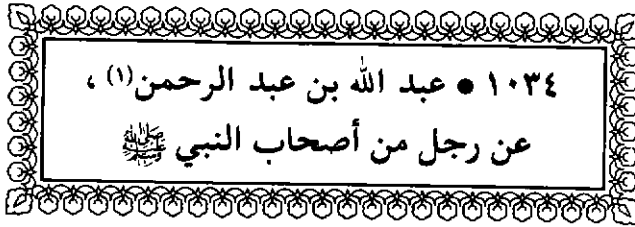 ١٠٣٤ • عبد الله بن عبد الرحمن(١) ،
عن رجل من أصحاب النبي ﷺ